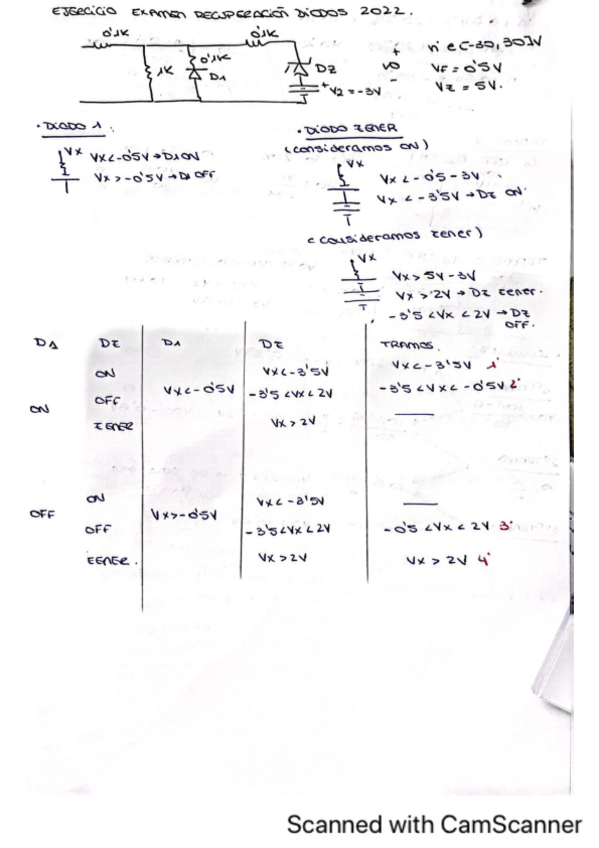 EJERCICIO EXAMEN RECUPERACIÓN DIODOS 2022.
0'1K
0'1K
1K
0'1K
D1
DZ
V2 = -3V
+
Vo
-
Vi ∈ [-30, 30]V
VF = 0'5V
VZ = 5V.
• DIODO 1:
Vx
Vx < -0'5V → D1 ON
Vx > -0'5V → D1 OFF
• DIODO ZENER
(consideramos ON)
Vx
Vx < -0'5 - 3V
Vx < -3'5V → DZ ON
(consideramos zener)
Vx
Vx > 5V - 3V
Vx > 2V → DZ zener.
-3'5 < Vx < 2V → DZ
OFF.
D1 DZ D1 DZ TRAMOS.
ON Vx < -3'5V Vx < -3'5V 1º
OFF Vx < -0'5V -3'5 < Vx < 2V -3'5 < Vx < -0'5V 2º
ON
ZENER Vx > 2V —
ON Vx < -3'5V —
OFF Vx > -0'5V
OFF -3'5 < Vx < 2V -0'5 < Vx < 2V 3º
ZENER. Vx > 2V Vx > 2V 4º
Scanned with CamScanner